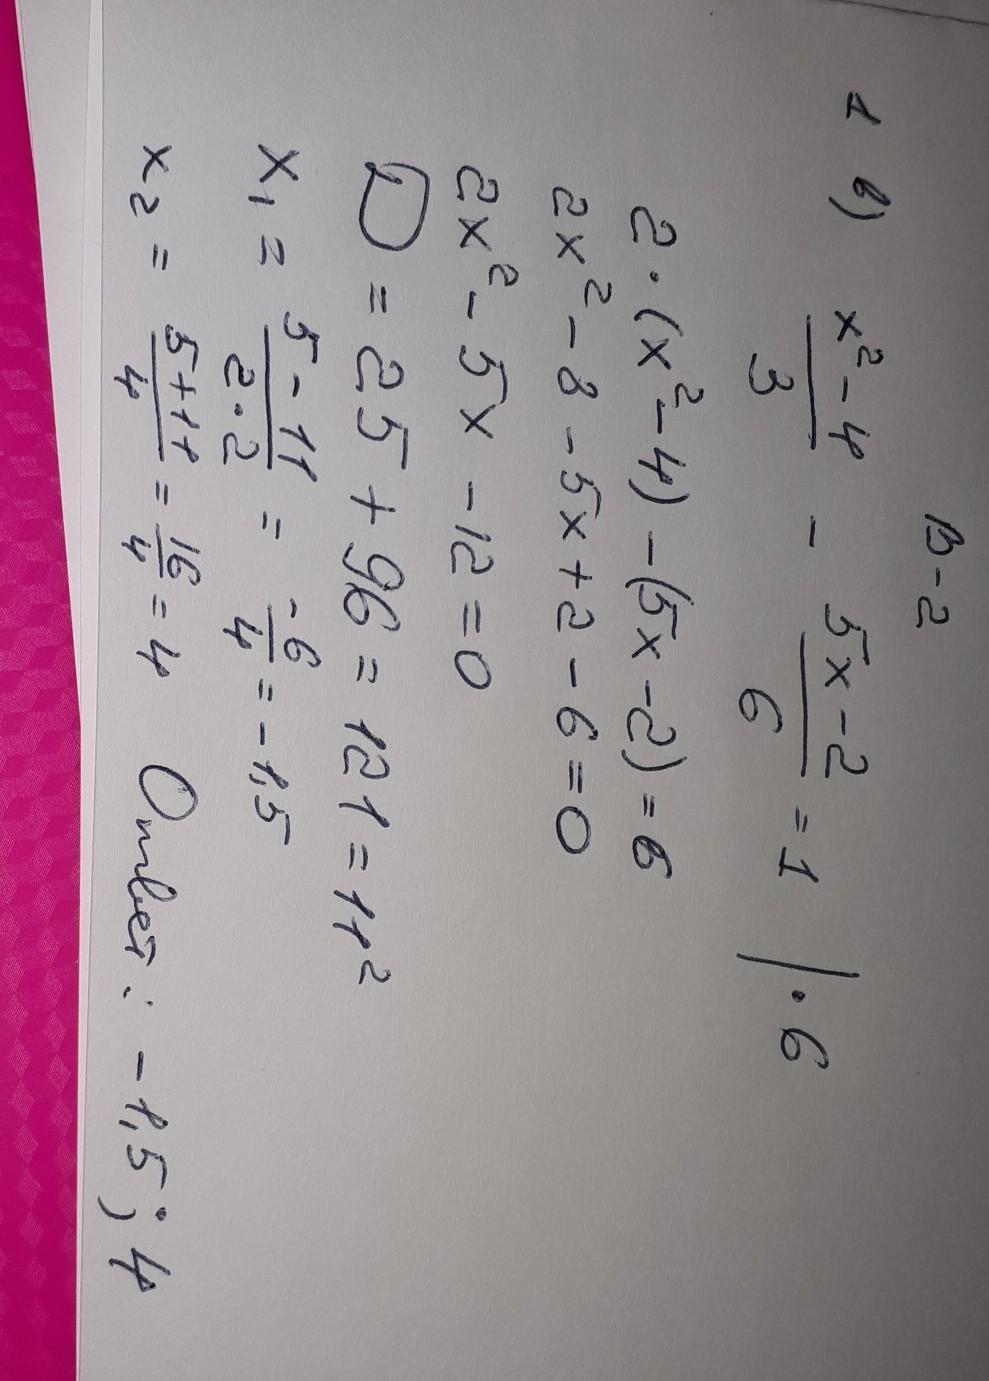 В-2
1 в) (x²-4)/3 - (5x-2)/6 = 1 | · 6
2·(x²-4)-(5x-2)=6
2x²-8-5x+2-6=0
2x²-5x-12=0
D=25+96=121=11²
x₁ = (5-11)/(2·2) = -6/4 = -1,5
x₂ = (5+11)/4 = 16/4 = 4 Ответ: -1,5; 4